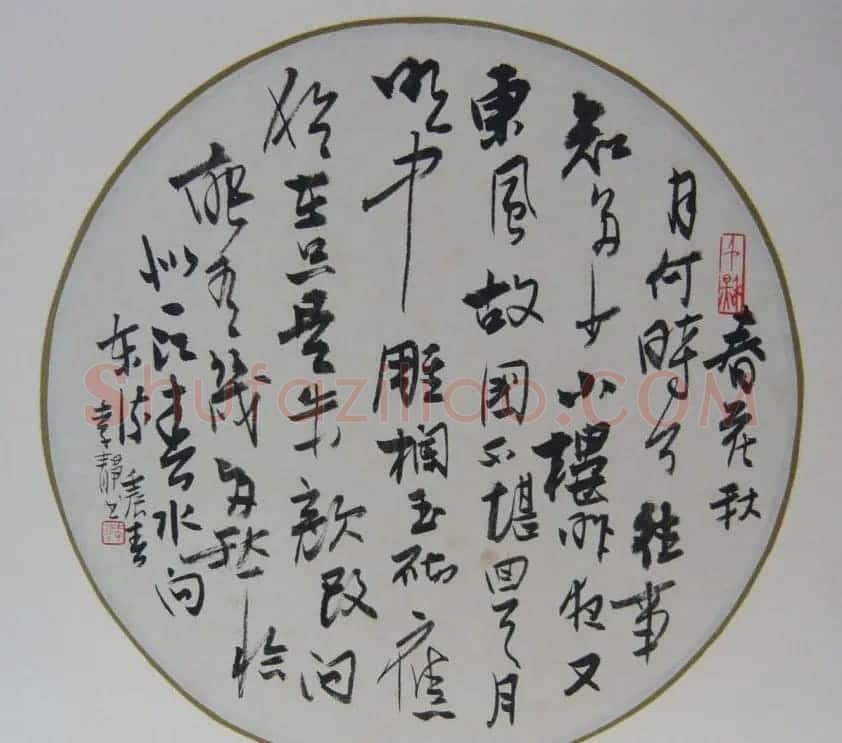 春花秋
月何時了往事
知多少小樓昨夜又
東風故國不堪回首月
明中雕欄玉砌應
猶在只是朱顏改问
能有幾多愁恰
似江春水向
东流 壬辰春
李靜书
Shufaziliao.COM